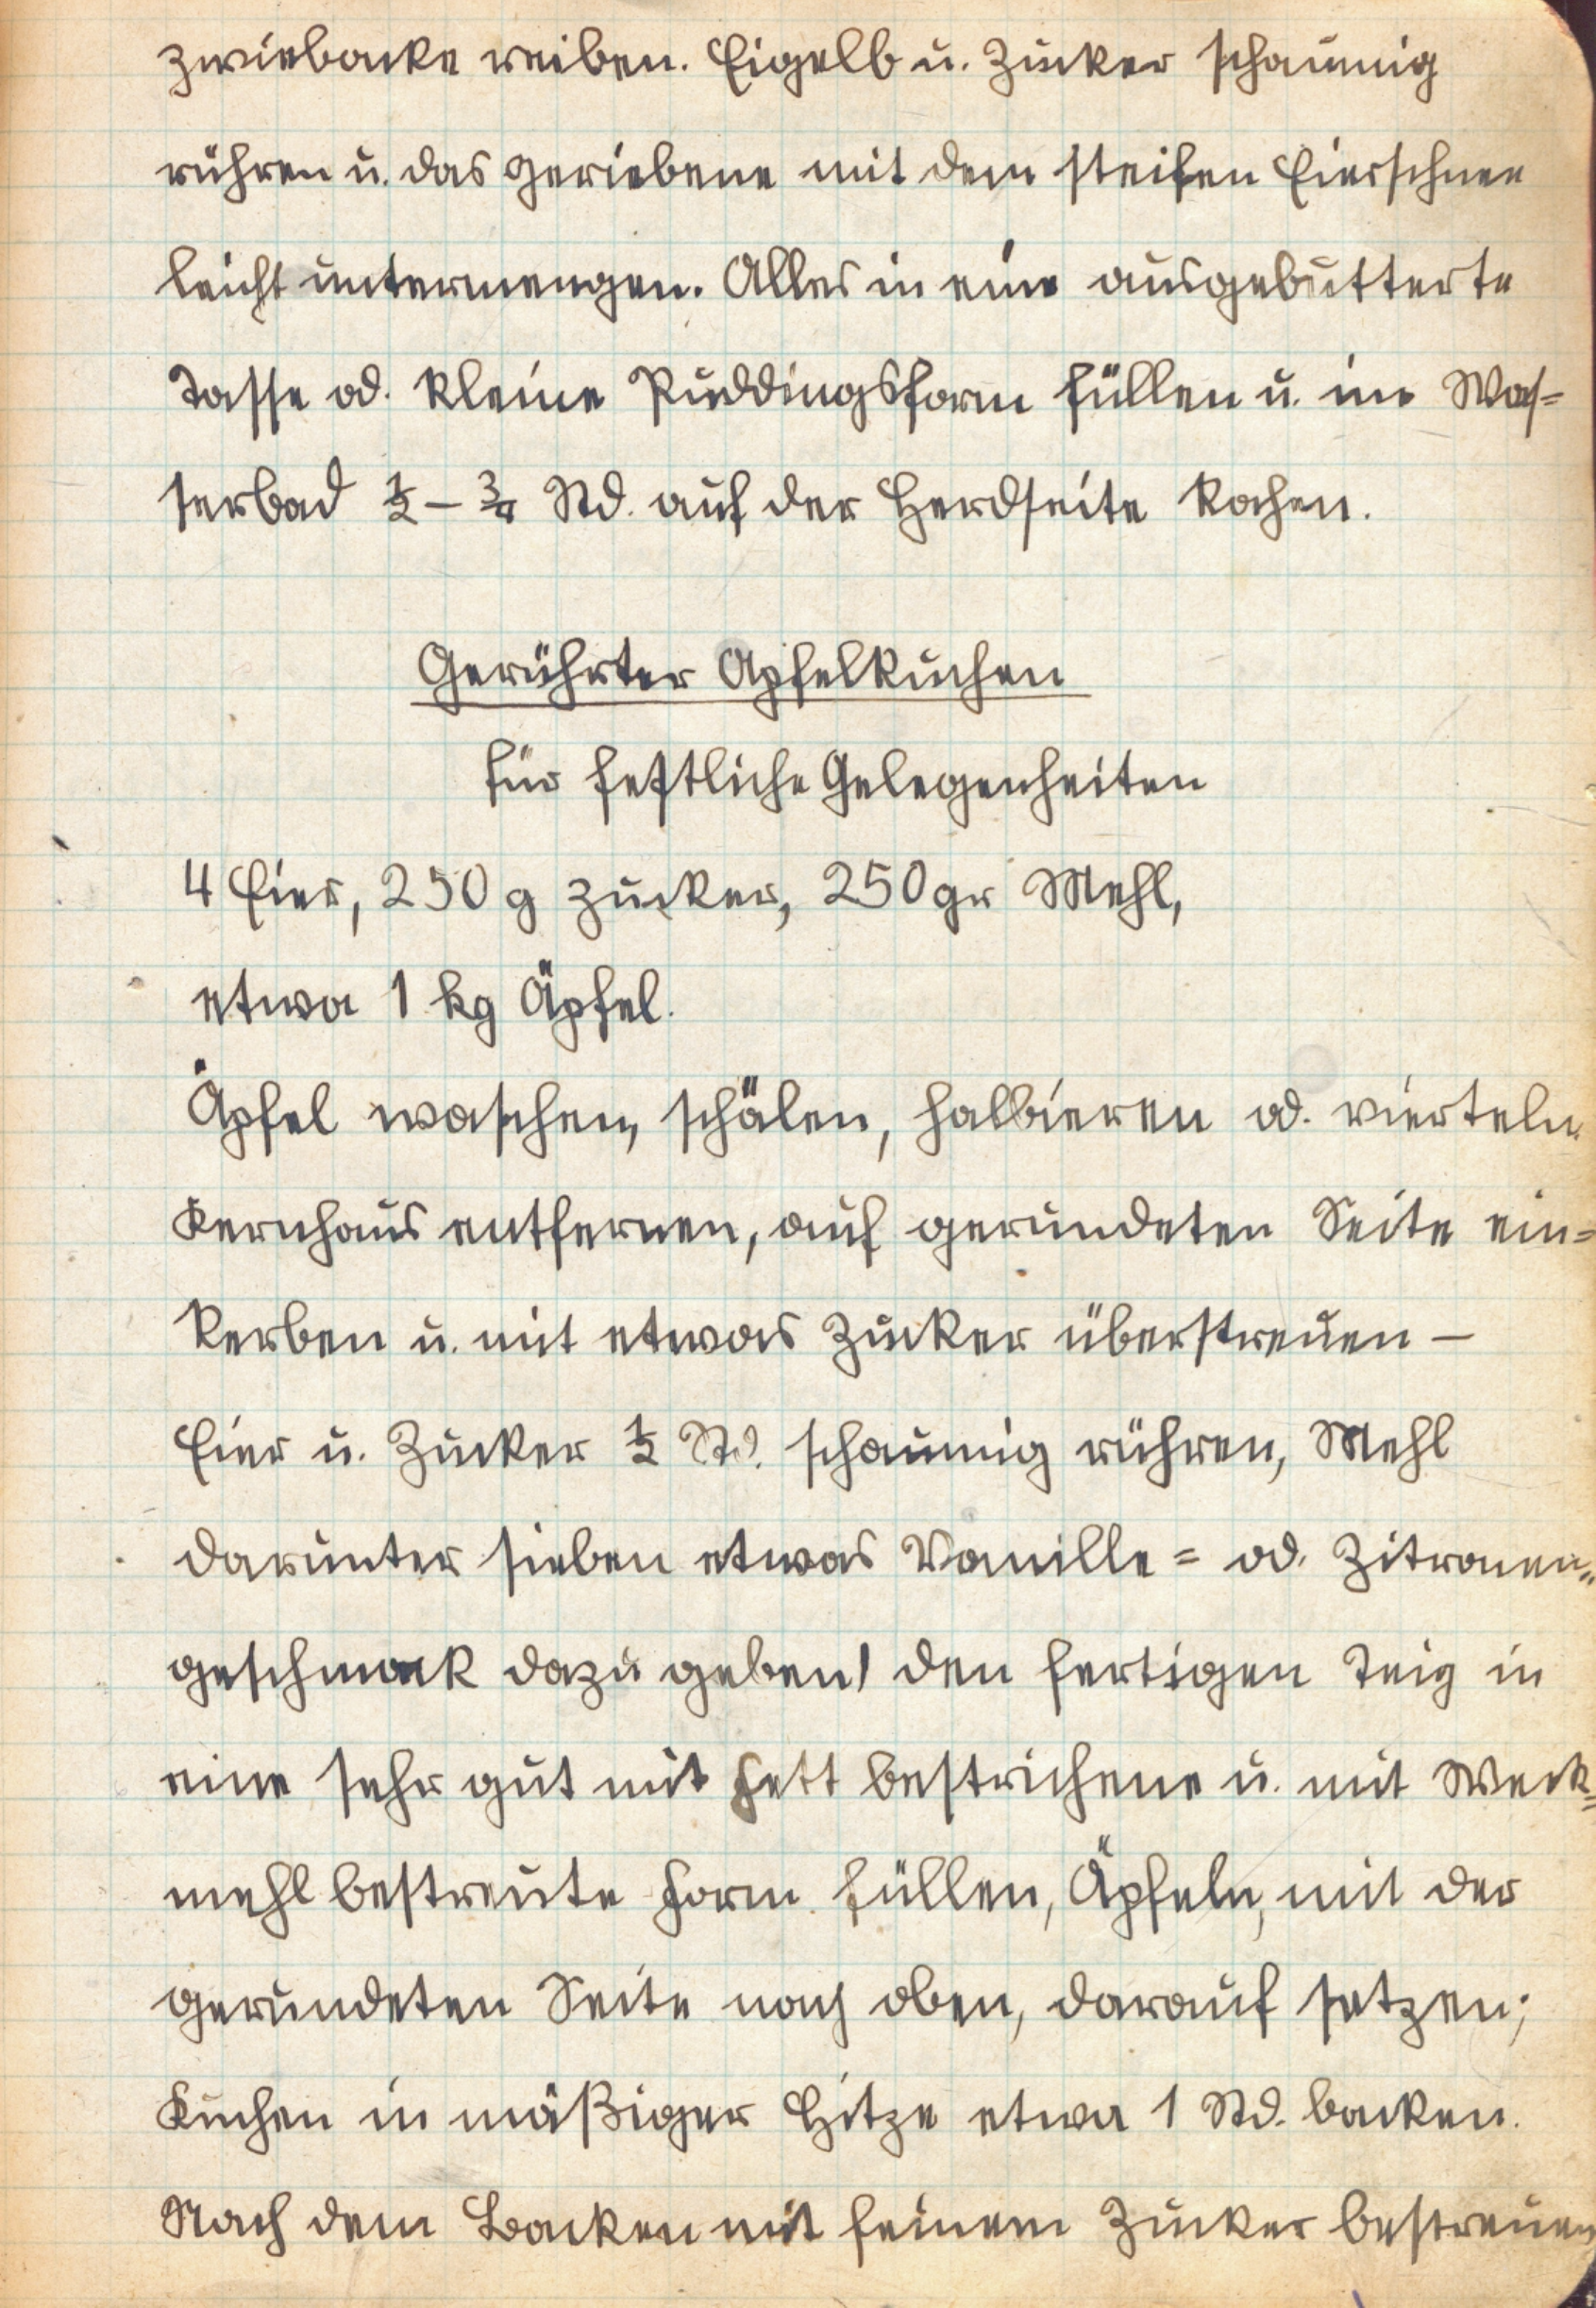 Zwiebacke reiben. Eigelb u. Zucker schaumig
rühren u. das geriebene mit dem steifen Eierschnee
leicht untermengen. Alles in eine ausgebutterte
Tasse od. kleine Puddingsform füllen u. im Was=
serbad ½ – ¾ Std. auf der Herdseite kochen.
Gerührter Apfelkuchen
für festliche Gelegenheiten
4 Eier, 250 g Zucker, 250 gr Mehl,
etwa 1 kg Äpfel.
Äpfel waschen, schälen, halbieren od. vierteln.
Kernhaus entfernen, auf gerundeten Seite ein=
kerben u. mit etwas Zucker überstreuen –
Eier u. Zucker ½ Std. schaumig rühren, Mehl
darunter sieben etwas Vanille= od. Zitronen=
geschmack dazu geben, den fertigen Teig in
eine sehr gut mit Fett bestrichene u. mit Weck=
mehl bestreute Form füllen, Äpfeln, mit der
gerundeten Seite nach oben, darauf setzen;
Kuchen in mäßiger Hitze etwa 1 Std. backen.
Nach dem Backen mit feinem Zucker bestreuen